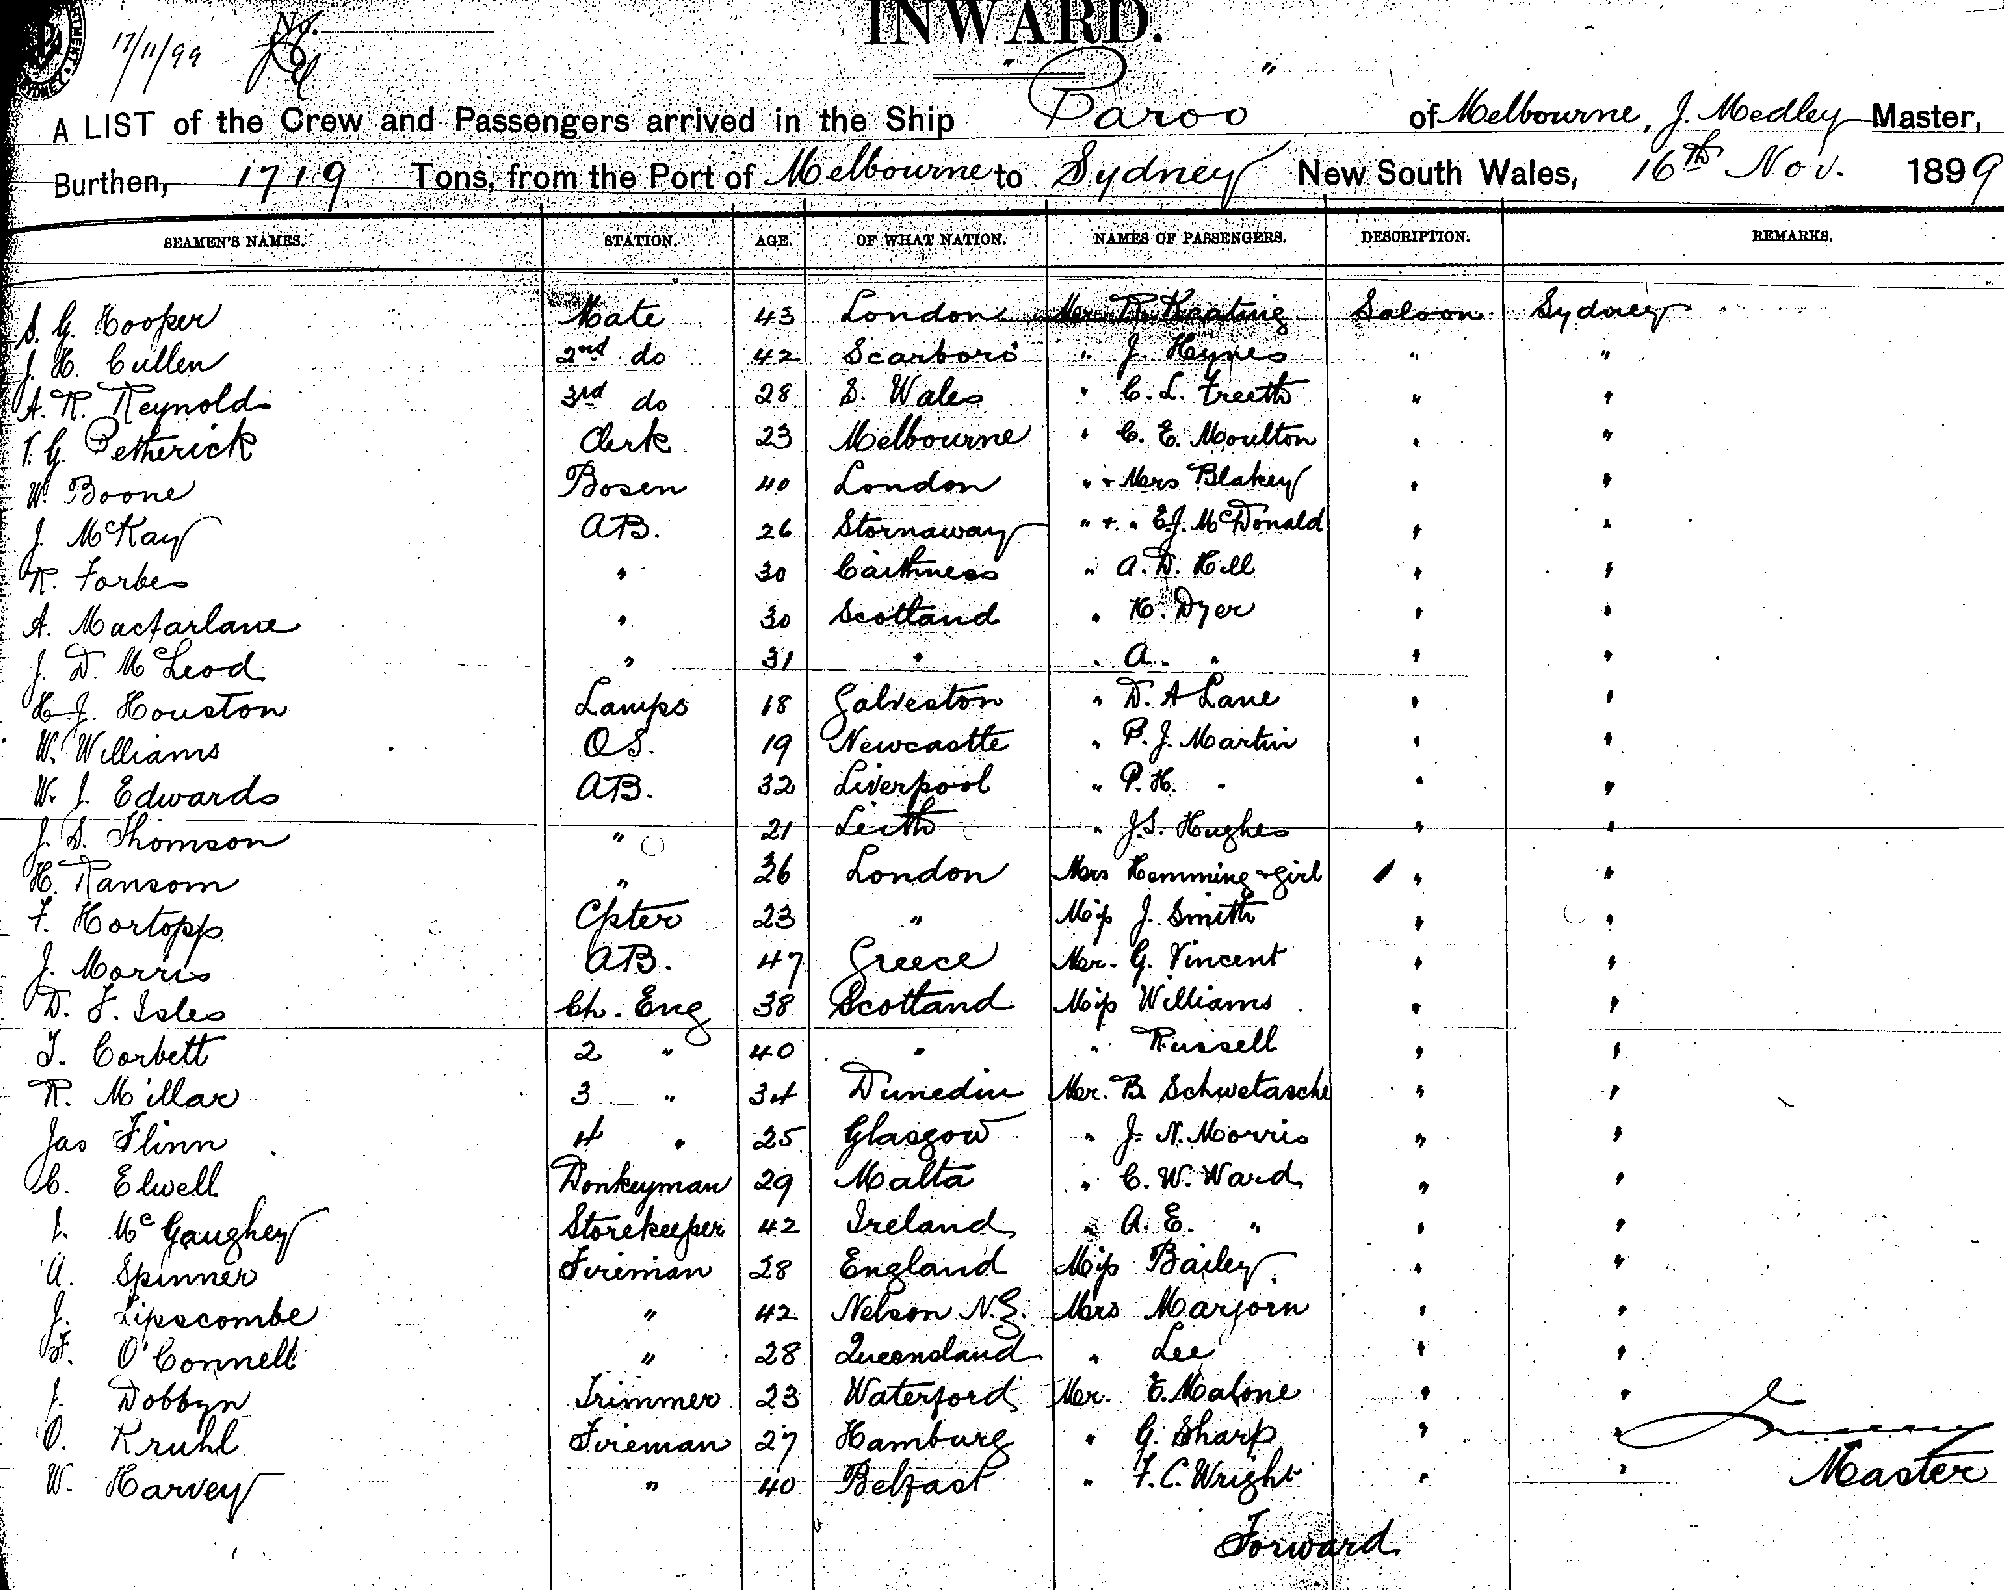 17/11/99 No.
INWARD.
A LIST of the Crew and Passengers arrived in the Ship Paroo of Melbourne, J. Medley Master,
Burthen, 1719 Tons, from the Port of Melbourne to Sydney New South Wales, 16th Nov. 1899
SEAMEN'S NAMES. STATION. AGE. OF WHAT NATION. NAMES OF PASSENGERS. DESCRIPTION. REMARKS.
S. G. Hooper Mate 43 London Mr. R. Keating Saloon Sydney
J. H. Cullen 2nd do 42 Scarboro " J. Hynes " "
A. R. Reynolds 3rd do 28 S. Wales " C. L. Freeth " "
T. G. Petherick Clerk 23 Melbourne " C. E. Moulton " "
W. Boone Bosen 40 London " + Mrs Blakey " "
J. McKay AB. 26 Stornaway " + " E.J. McDonald " "
R. Forbes " 30 Caithness " A. D. Hill " "
A. Macfarlane " 30 Scotland " H. Dyer " "
J. D. McLeod " 31 " " A. " " "
H. J. Houston Lamps 18 Galveston " D. A Lane " "
W. Williams OS. 19 Newcastle " P. J. Martin " "
W. J. Edwards AB. 32 Liverpool " P. H. " " "
J. S. Thomson " 21 Leith " J.S. Hughes " "
H. Ransom " 26 London Mrs Hemming + girl " "
F. Hortopp Cpter 23 " Miss J. Smith " "
J. Morris AB. 47 Greece Mr. G. Vincent " "
D. F. Isles Ch. Eng 38 Scotland Miss Williams " "
T. Corbett 2 " 40 " " Russell " "
R. Millar 3 " 34 Dunedin Mr. B. Schwetasche " "
Jas Flinn 4 " 25 Glasgow " J. N. Morris " "
C. Elwell Donkeyman 29 Malta " C. W. Ward " "
J. McGaughey Storekeeper 42 Ireland " A. E. " " "
A. Spinner Fireman 28 England Miss Bailey " "
J. Lipscombe " 42 Nelson N.Z. Mrs Marjorn " "
F. O'Connell " 28 Queensland " Lee " "
J. Dobbyn Trimmer 23 Waterford Mr. E. Malone " "
O. Kruhl Fireman 27 Hamburg " G. Sharp " "
W. Harvey " 40 Belfast " F. C. Wright " " Master
Forward